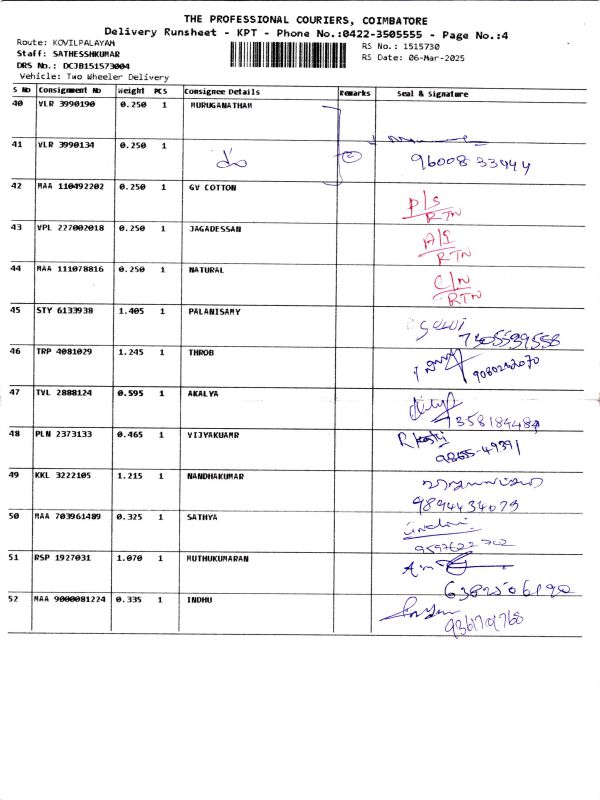 THE PROFESSIONAL COURIERS, COIMBATORE
Delivery Runsheet - KPT - Phone No.:0422-3505555 - Page No.:4
Route: KOVILPALAYAM
RS No.: 1515730
Staff: SATHESSHKUMAR
RS Date: 06-Mar-2025
DRS No.: DCJB151573004
Vehicle: Two Wheeler Delivery
S No Consignment No Weight PCS Consignee Details Remarks Seal & Signature
40 VLR 3990190 0.250 1 MURUGANATHAM
41 VLR 3990134 0.250 1
96008 33444
42 MAA 110492202 0.250 1 GV COTTON P/S
RTN
43 VPL 227002018 0.250 1 JAGADESSAN
RTN
44 MAA 111078816 0.250 1 NATURAL C/N
RTN
45 STY 6133938 1.405 1 PALANISAMY
7305539558
46 TRP 4081029 1.245 1 THROB
47 TVL 2888124 0.595 1 AKALYA
48 PLN 2373133 0.465 1 VIJYAKUAMR
98655-49391
49 KKL 3222105 1.215 1 NANDHAKUMAR
9894434075
50 MAA 703961489 0.325 1 SATHYA
51 RSP 1927031 1.070 1 MUTHUKUMARAN
52 MAA 9000081224 0.335 1 INDHU